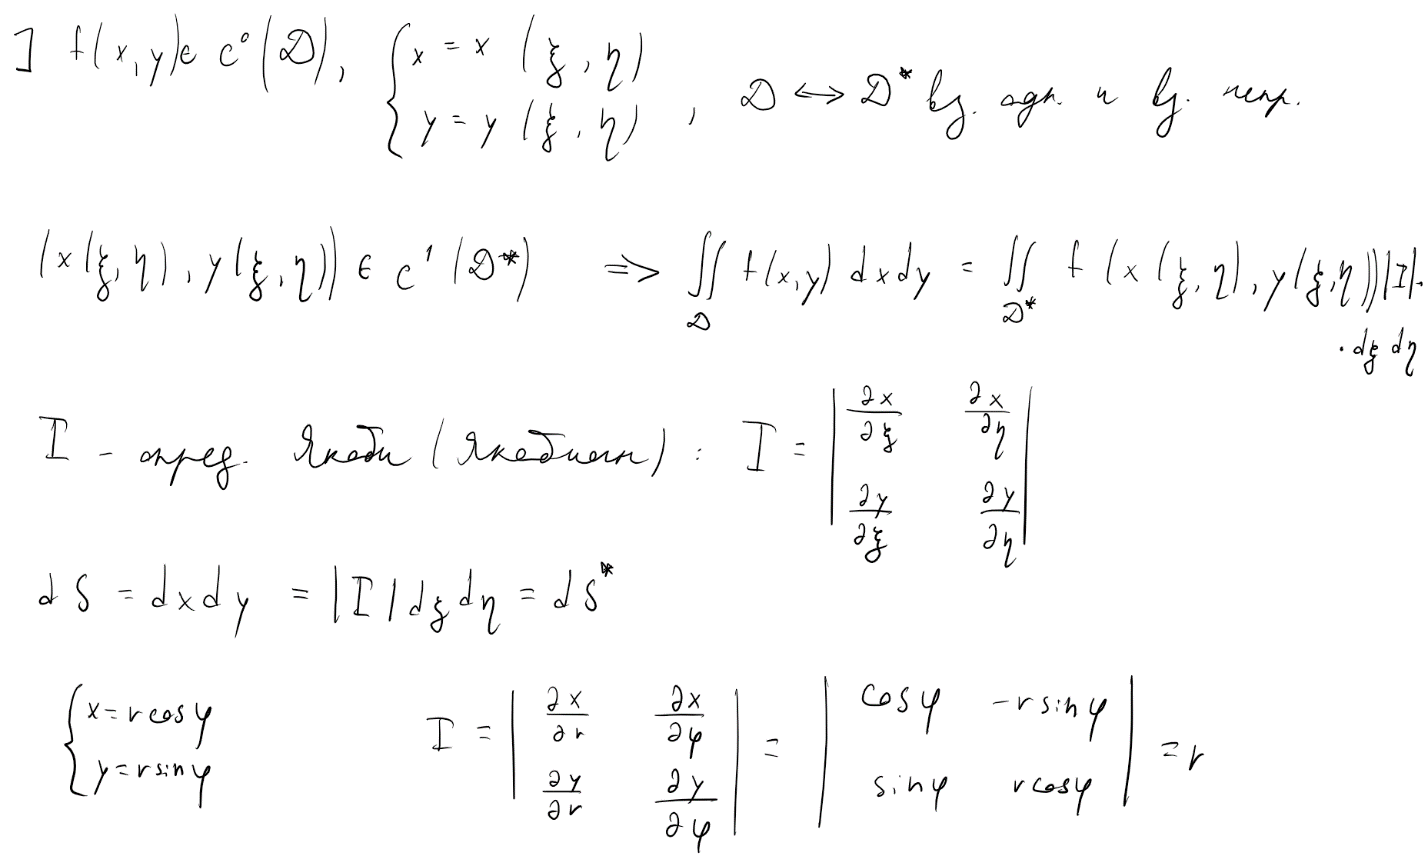 ] f(x,y) ∈ C⁰(D), { x = x(ξ, η) y = y(ξ, η) , D ⟷ D* вз. одн. и вз. непр.
(x(ξ,η), y(ξ,η)) ∈ C¹(D*) ⇒ ∬_D f(x,y) dxdy = ∬_{D*} f(x(ξ,η), y(ξ,η))|I|·
· dξ dη
I – опред. Якоби (Якобиан) : I = | ∂x/∂ξ ∂x/∂η ; ∂y/∂ξ ∂y/∂η |
dS = dxdy = |I| dξ dη = dS*
{ x = r cos φ y = r sin φ I = | ∂x/∂r ∂x/∂φ ; ∂y/∂r ∂y/∂φ | = | cos φ −r sin φ ; sin φ r cos φ | = r